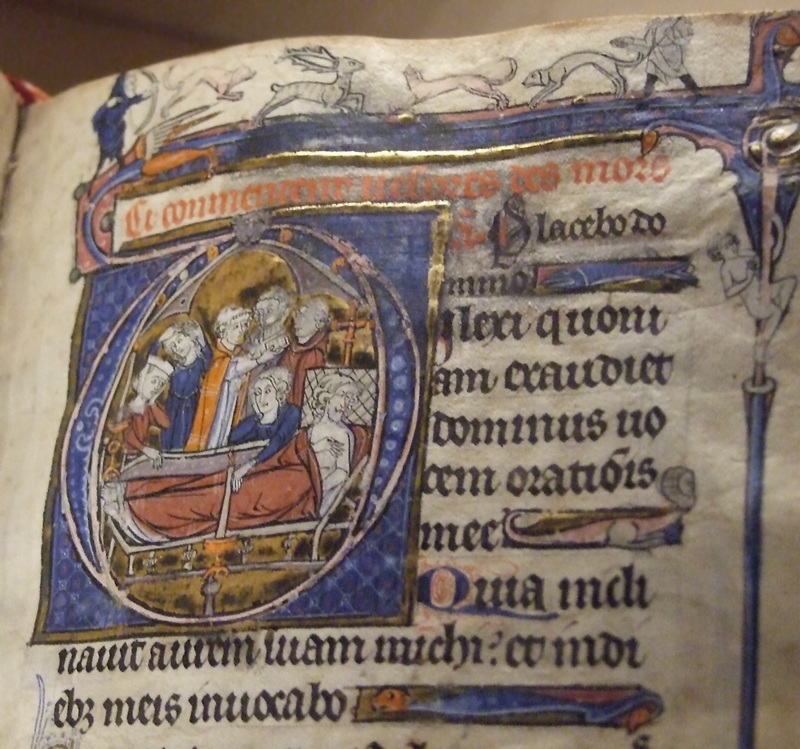 Ci commencent les ores des mors
Placebo do
mino
ilexi quoni
am exaudiet
dominus uo
cem oratiõis
mee
Quia incli
nauit aurem suam michi: et in di
ebꝫ meis inuocabo